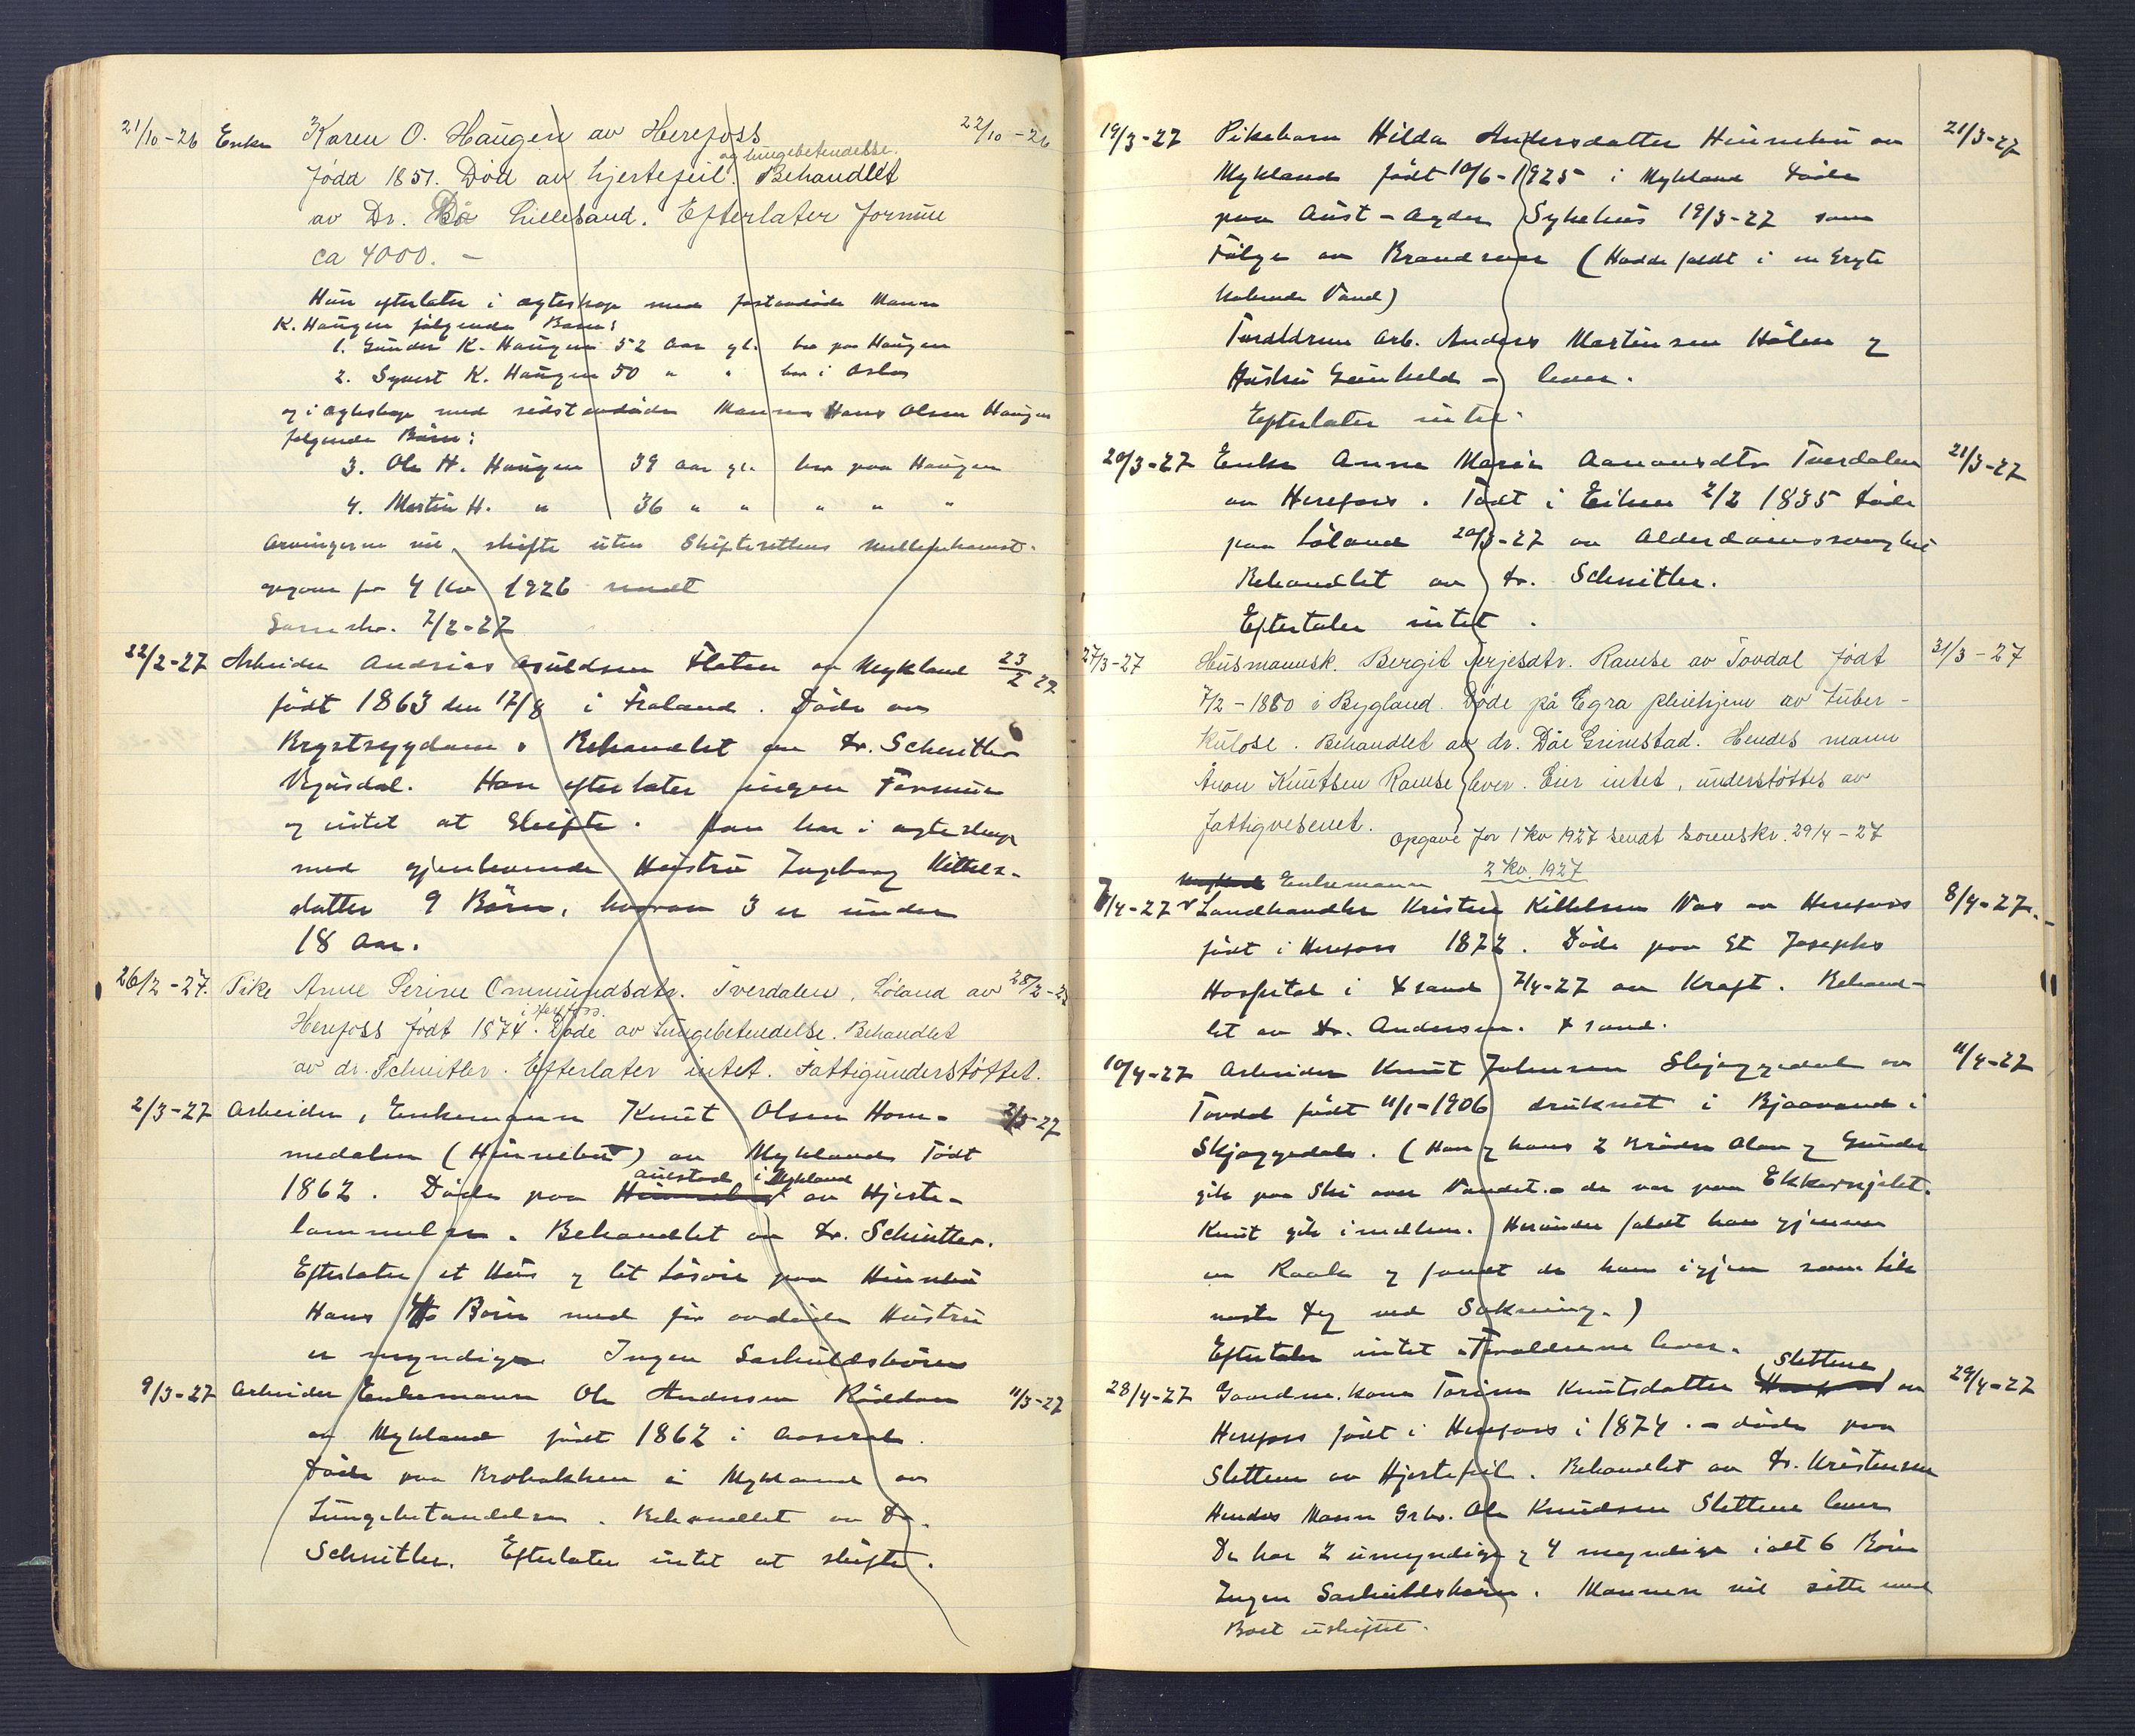 21/10-26 Enke Karen O. Haugen av Herefoss 22/10-26
og lungebetendelse.
født 1851. Död av hjertefeil. Behandlet
av Dr. Bö Lillesand. Efterlater formue
ca 4000. -
Hun efterlater i ægteskap med først avdøde Mann
K. Haugen følgende Barn:
1. Gunder K. Haugen 52 Aar gl. bor paa Haugen
2. Syvert K. Haugen 50 " " bor i Oslo
og i ægteskap med sidst avdöde Mann Hans Olsen Haugen
følgende Börn:
3. Ole H. Haugen 39 aar gl. bor paa Haugen
4. Martin H. " 36 " " " " "
Arvingerne vil skifte uten Skifterettens mellemkomst.
opgave for 4 Kv 1926 sendt
Sorenskr. 7/2-27
22/2-27 Arbeider Andreas Osuldsen Flaten av Mykland 23/2 27
født 1863 den 17/8 i Froland. Döde av
Brystsygdom. Behandlet av Dr. Schnitler
Vegusdal. Han efterlater ingen Formue
og intet at Skifte. Han har i ægteskap
med gjenlevende Hustru Ingeborg Kittels-
datter 9 Börn, hvorav 3 er under
18 Aar.
26/2-27. Pike Anne Serine Ommundsdtr. Tverdalen, Løland av 28/2-27
i Herefoss.
Herefoss født 1874. Døde av Lungebetendelse. Behandlet
av dr. Schnitler. Efterlater intet. Fattigunderstøttet.
2/3-27 Arbeider, Enkemann Knut Olsen Hom- 3/3-27
medalen (Hunnebu) av Mykland Födt
aulestad i Mykland
1862. Döde paa Hunnebu av Hjerte-
lammelse. Behandlet av Dr. Schnitler.
Efterlater et Hus og litt Løsøre paa Hunnebu
Hans 4 Börn med før avdöde Hustru
er myndige. Ingen Særkuldsbörn
9/3-27 Arbeider Enkemann Ole Andersen Råddan 11/3-27
av Mykland född 1862 i Aaseral.
Döde paa Brobakken i Mykland av
Lungebetændelse. Behandlet av Dr.
Schnitler. Efterlater intet at skifte.
19/3-27 Pikebarn Hilda Andersdatter Hunnebu av 21/3-27
Mykland født 10/6-1925 i Mykland döde
paa Aust-Agder Sykehus 19/3-27 som
Følge av Brandsaar (Hadde faldt i en Gryte
kokende Vand)
Forældrene Arb. Anders Martinsen Hålen og
Hustru Gunhild - lever.
Efterlater intet.
20/3-27 Enke Anne Marie Aanonsdtr Tverdalen 21/3-27
av Herefoss. Født i Eiken 2/2 1835 døde
paa Løland 20/3-27 av Alderdomssvaghet
Behandlet av Dr. Schnitler.
Efterlater intet.
27/3-27 Husmannsk. Bergit Terjesdtr. Ramse av Tovdal født 31/3-27
7/2-1880 i Bygland. Døde på Egra pleiehjem av tuber-
kulose. Behandlet av dr. Döe Grimstad. Hendes mann
Ånon Knutsen Ramse lever. Eier intet, understøttes av
fattigvesenet. Opgave for 1 kv 1927 sendt sorenskr. 29/4-27
2 kv. 1927
Enkemann
7/4-27 Landhandler Kristen Kittelsen Vas av Herefoss 8/4-27.
født i Herefoss 1872. Döde paa St Josephs
Hospital i Xsand 7/4-27 av Kræft. Behand-
let av Dr. Andersen. Xsand.
10/4-27 Arbeider Knut Johnsen Skjeggedal av 11/4-27
Tovdal født 11/1-1906 druknet i Bjaavand i
Skjeggedal. (Han og hans 2 Brödre Olav og Gunder
gik paa Ski over Vandet - de var paa Ekkornjakt.
Knut gik imellem. Herunder faldt han gjennem
en Raak og fandt de ham igjen som Lik
neste Dag ved Sokning.)
Efterlater intet. Forældrene lever.
Slettene
28/4-27 Gaardm. kone Torine Knutsdatter av 29/4-27
Herefoss født i Herefoss i 1874. - döde paa
Slettene av Hjertefeil. Behandlet av Dr. Kristensen
Hendes Mann Grbr. Ole Knudsen Slettene lever
De har 2 umyndige og 4 myndige ialt 6 Börn
Ingen Særkuldsbörn. Mannen vil sitte med
Boet uskiftet.